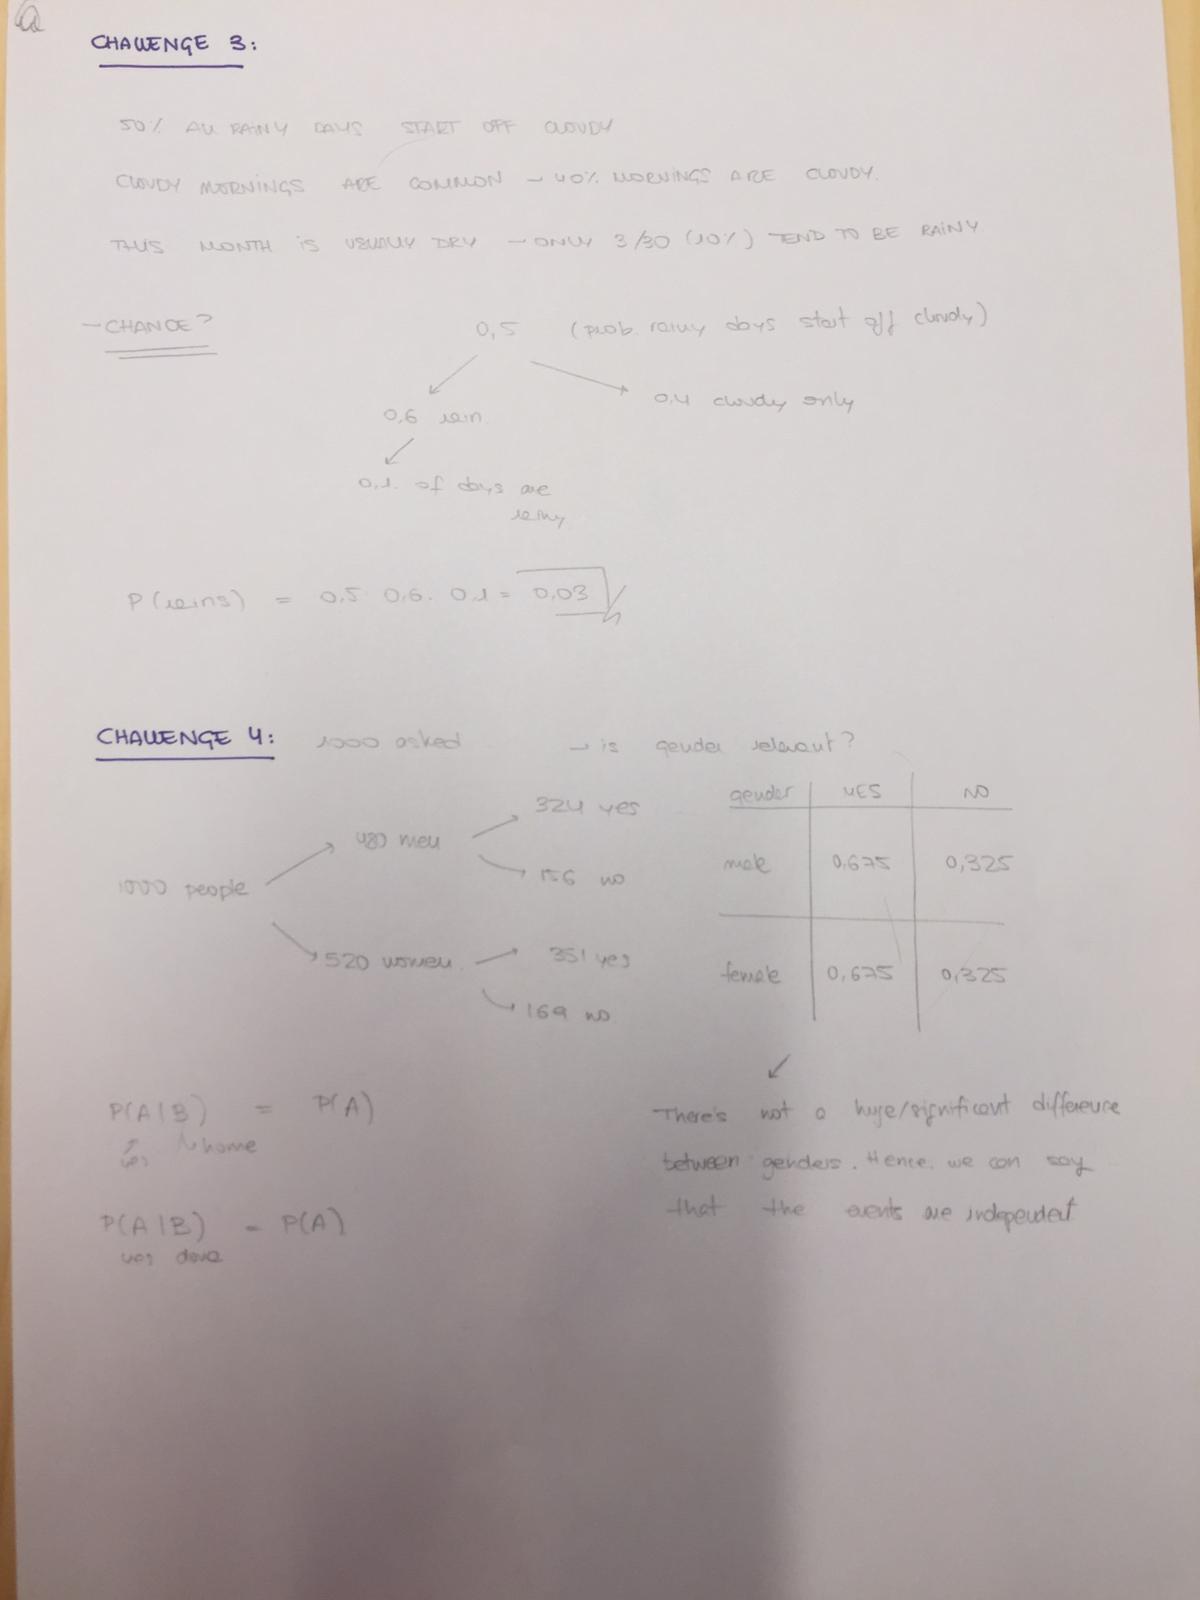 CHALLENGE 3:
50% ALL RAINY DAYS START OFF CLOUDY
CLOUDY MORNINGS ARE COMMON - 40% MORNINGS ARE CLOUDY.
THIS MONTH IS USUALLY DRY - ONLY 3/30 (10%) TEND TO BE RAINY
- CHANCE?
0,5 (prob. rainy days start off cloudy)
0,6 rain
0,4 cloudy only
0,1 of days are
rainy
P(rains) = 0,5 0,6. 0,1 = 0,03
CHALLENGE 4: 1000 asked → is gender relevant?
1000 people
480 men
324 yes
156 no
520 women
351 yes
169 no
gender YES NO
male 0,675 0,325
female 0,675 0,325
P(A|B) = P(A)
yes home
P(A|B) = P(A)
yes
There's not a huge/significant difference
between genders. Hence, we can say
that the events are independent